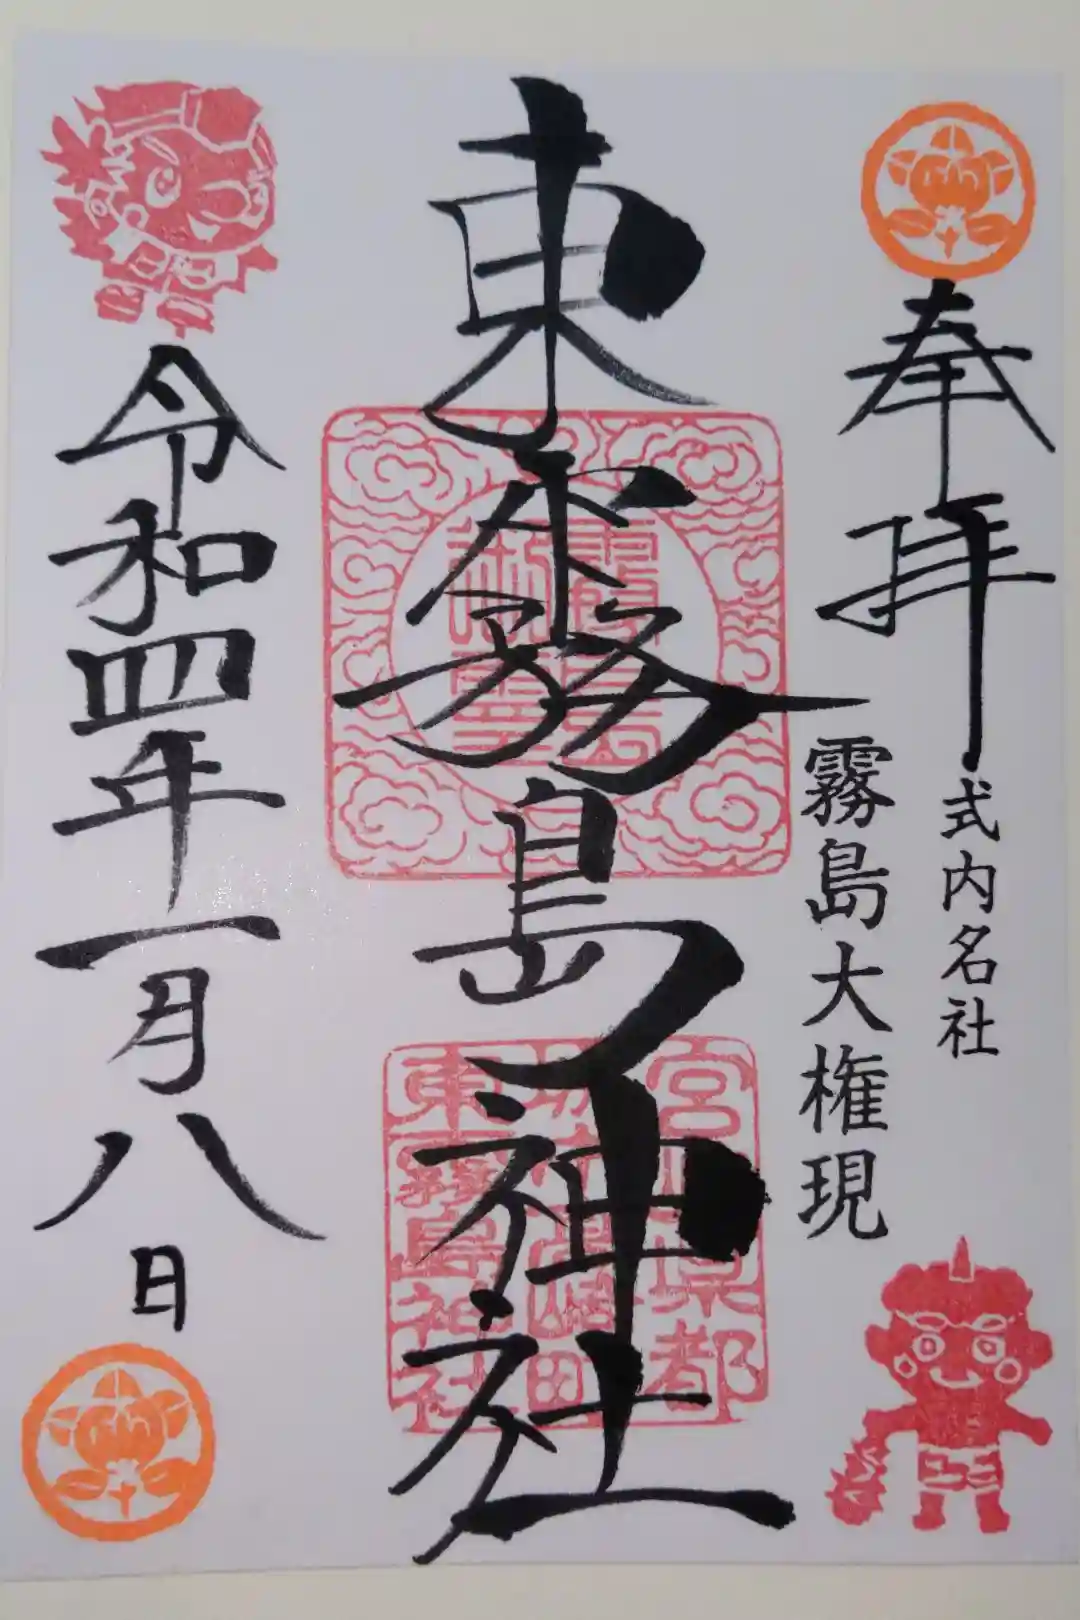 奉拝
式内名社
霧島大権現
東霧島神社
令和四年一月八日
宮崎県都
城市高崎町
東霧島神社